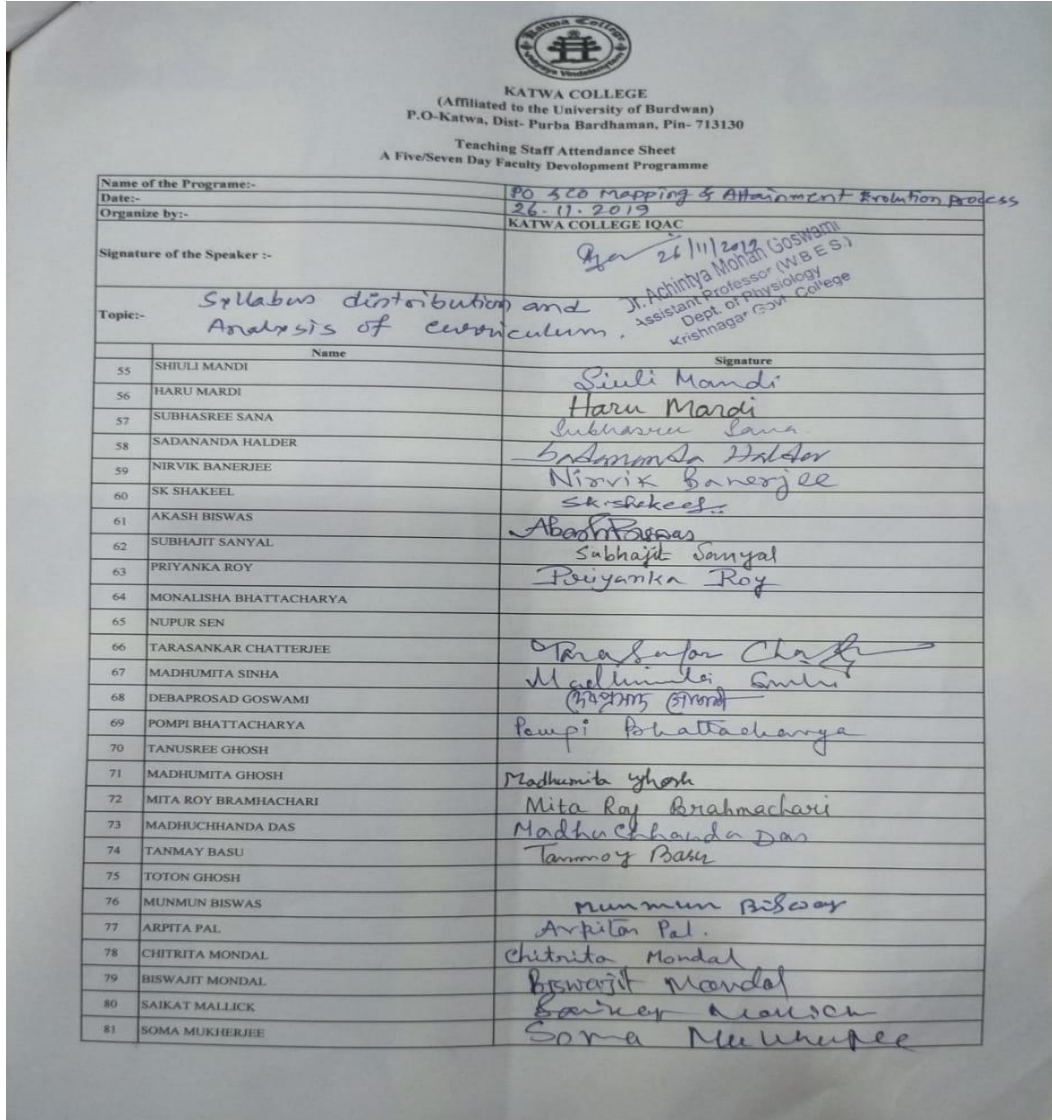 Katwa College
Vidyaya Vindatemrytam
KATWA COLLEGE
(Affiliated to the University of Burdwan)
P.O-Katwa, Dist- Purba Bardhaman, Pin- 713130
Teaching Staff Attendance Sheet
A Five/Seven Day Faculty Devolopment Programme
Name of the Programe:- PO & CO Mapping & Attainment Evolution process
Date:- 26-11-2019
Organize by:- KATWA COLLEGE IQAC
Signature of the Speaker :- 26/11/2019
Dr. Achintya Mohan Goswami
Assistant Professor (W.B.E.S.)
Dept. of Physiology
Krishnagar Govt. College
Topic:- Syllabus distribution and
Analysis of curriculum.
Name Signature
55 SHIULI MANDI Siuli Mandi
56 HARU MARDI Haru Mardi
57 SUBHASREE SANA Subhasree Sana
58 SADANANDA HALDER Sadananda Halder
59 NIRVIK BANERJEE Nirvik Banerjee
60 SK SHAKEEL Sk. Shakeel
61 AKASH BISWAS Akash Biswas
62 SUBHAJIT SANYAL Subhajit Sanyal
63 PRIYANKA ROY Priyanka Roy
64 MONALISHA BHATTACHARYA
65 NUPUR SEN
66 TARASANKAR CHATTERJEE
67 MADHUMITA SINHA Madhumita Sinha
68 DEBAPROSAD GOSWAMI দেবপ্রসাদ গোস্বামী
69 POMPI BHATTACHARYA Pompi Bhattacharya
70 TANUSREE GHOSH
71 MADHUMITA GHOSH Madhumita Ghosh
72 MITA ROY BRAMHACHARI Mita Roy Brahmachari
73 MADHUCHHANDA DAS Madhuchhanda Das
74 TANMAY BASU Tanmoy Basu
75 TOTON GHOSH
76 MUNMUN BISWAS Munmun Biswas
77 ARPITA PAL Arpita Pal.
78 CHITRITA MONDAL Chitrita Mondal
79 BISWAJIT MONDAL Biswajit Mondal
80 SAIKAT MALLICK Saikat Mallick
81 SOMA MUKHERJEE Soma Mukherjee